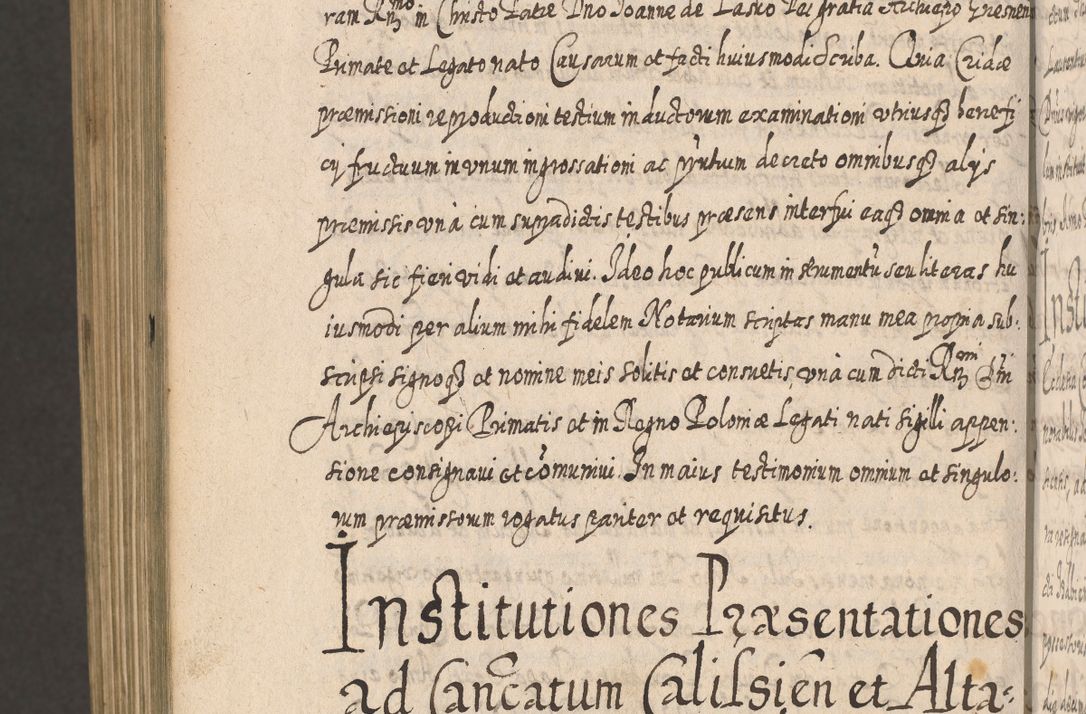 ram Rn̄dmo in Christo Patre Dno Joanne de Lasko Dei gratia Archiepo Gnesnen
Primate et Legato nato Causarum et facti huiusmodi Scriba. Quia
præmissioni reproductioni testium inductorum examinationi vtriusq3 benefi
cij fructuum in vnum ingrossationi ac decreto omnibusq3 alijs
premissis vnà cum supradictis testibus præsens interfui eaq3 omnia et sin:
gula sic fieri vidi et audivi. Ideo hoc publicum instrumentū seu literas hu
iusmodi per alium mihi fidelem Notarium scriptas manu mea propria sub:
scripsi signoq3 et nomine meis solitis et consuetis, vnà cum dicti Rn̄dmi Dni
Archiepiscopi Primatis et in Regno Poloniæ Legati nati sigilli appen:
sione consignavi et cōmunivi. In maius testimonium omnium et singulo:
rum præmissorum rogatus pariter et requisitus.
Institutiones Præsentationes
ad Canc̄atum Calissien̄ et Alta-